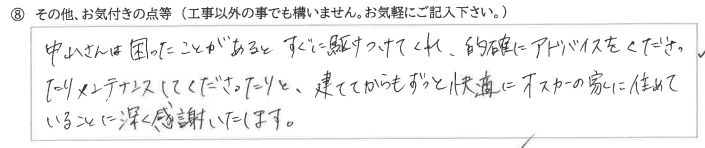 ⑧ その他、お気付きの点等（工事以外の事でも構いません。お気軽にご記入下さい。）
中山さんは困ったことがあると すぐに駆けつけてくれ、的確にアドバイスをくださっ
たりメンテナンスしてくださったりと、建ててからもずっと快適にオスカーの家に住めて
いることに深く感謝いたします。